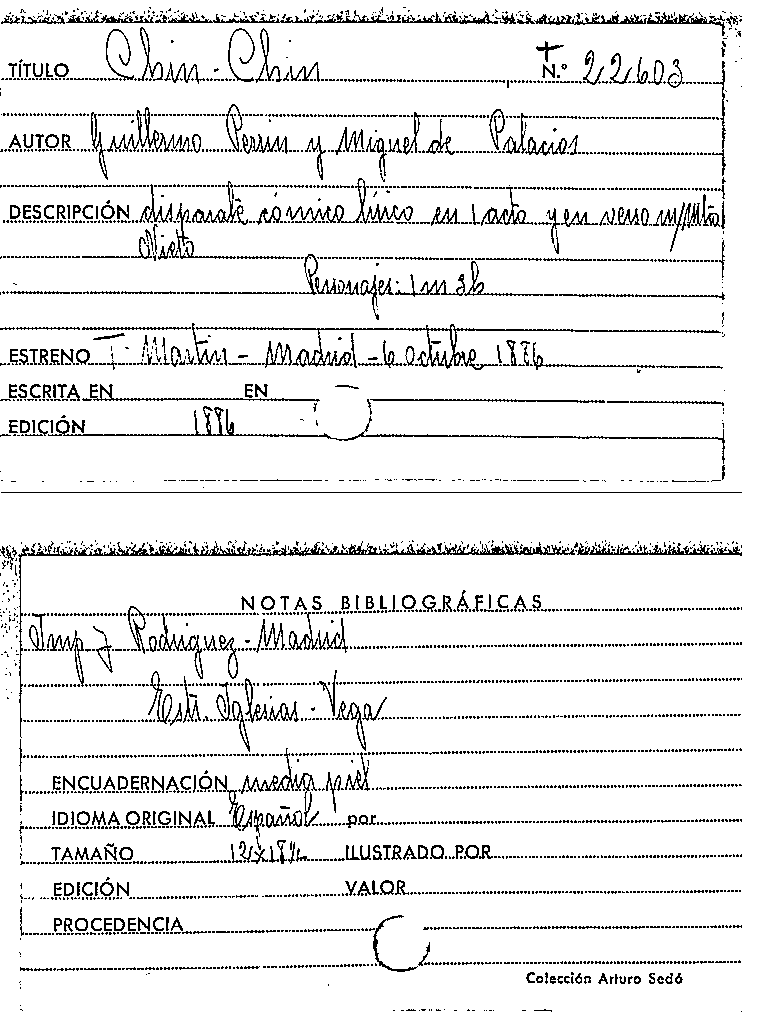 TÍTULO Chin-Chin N.º 22603
AUTOR Guillermo Perrin y Miguel de Palacios
DESCRIPCIÓN disparate cómico lírico en 1 acto y en verso m/Mtro
Nieto
Personajes: 1 m 3 h
ESTRENO T. Martin - Madrid - 6 octubre 1886
ESCRITA EN EN
EDICIÓN 1886
NOTAS BIBLIOGRÁFICAS
Imp J Rodriguez - Madrid
Estr. Iglesias - Vega
ENCUADERNACIÓN media piel
IDIOMA ORIGINAL Español por
TAMAÑO ILUSTRADO POR
EDICIÓN VALOR
PROCEDENCIA
Colección Arturo Sedó